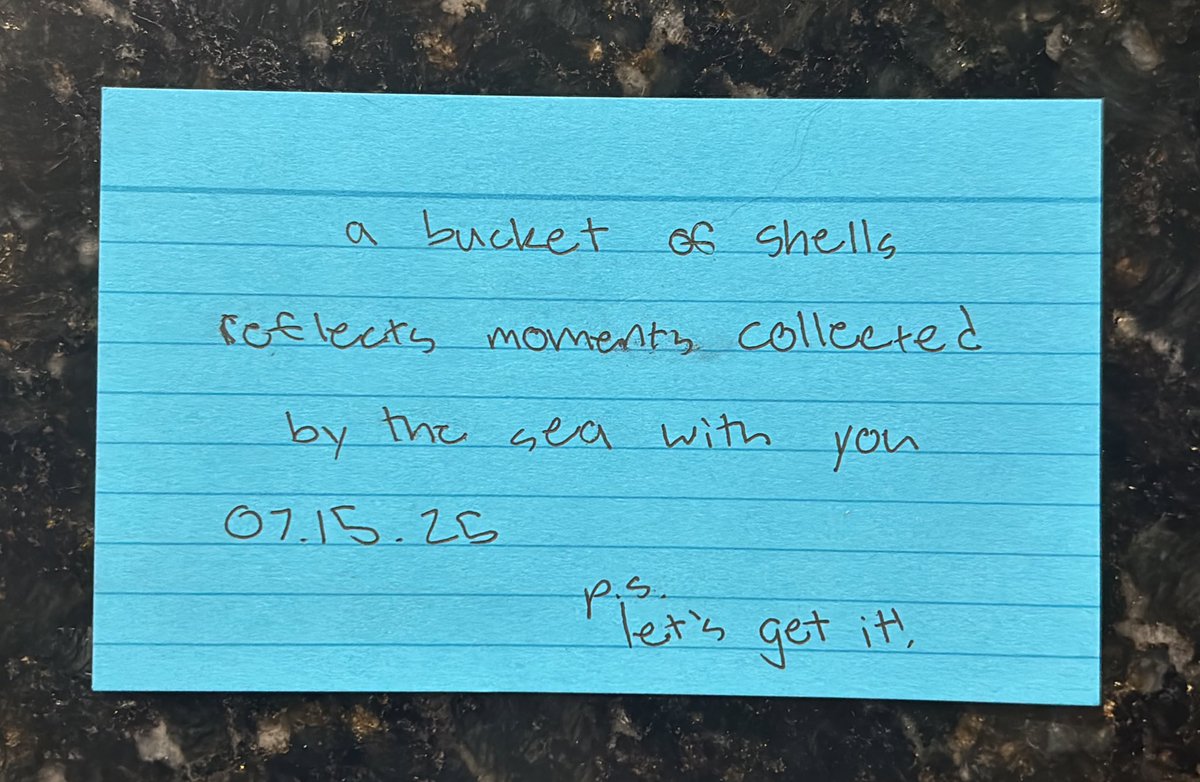 a bucket of shells
reflects moments collected
by the sea with you
07.15.25
p.s.
let's get it!